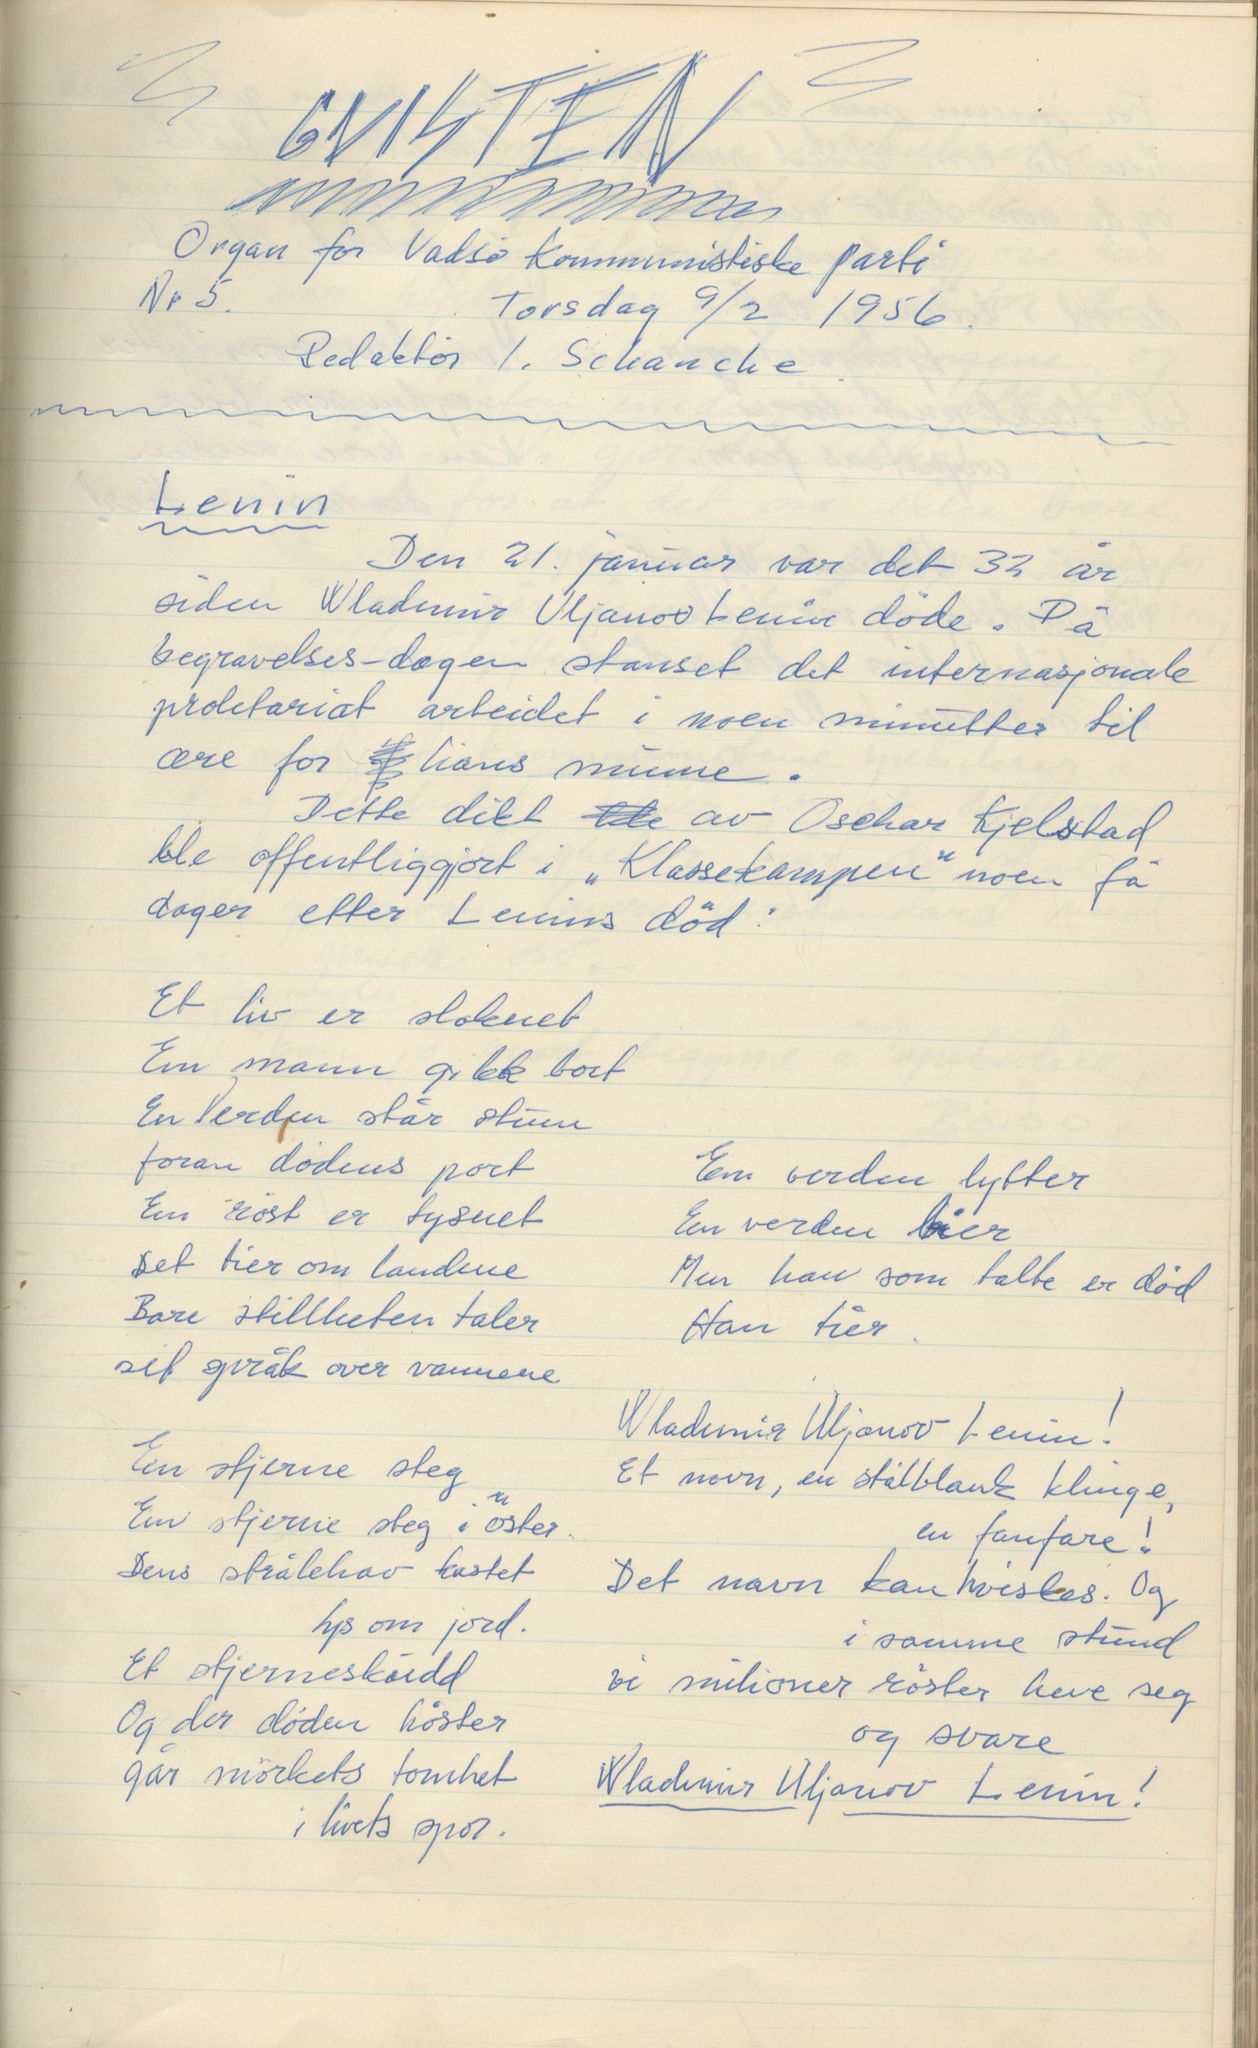 GNISTEN
Organ for Vadsö kommunistiske parti
Nr 5. Torsdag 9/2 1956.
Redaktör I. Schanche.
Lenin
Den 21. januar var det 32 år
siden Wladimir Uljanov Lenin döde. På
begravelses-dagen stanset det internasjonale
proletariat arbeidet i noen minutter til
ære for hans minne.
Dette dikt av Oschar Kjelstad
ble offentliggjort i „Klassekampen" noen få
dager etter Lenins död:
Et liv er sloknet
En mann gikk bort
En Verden står stum
foran dödens port
En röst er tysnet
Det tier om landene
Bare stillheten taler
sit språk over vannene
En stjerne steg
En stjerne steg i öster.
Dens strålehav kastet
lys om jord.
Et stjerneskudd
Og der döden höster
går mörkets tomhet
i livets spor.
En verden lytter
En verden bier
Men han som talte er död
Han tier.
Wladimir Uljanov Lenin!
Et navn, en stålblank klinge,
en fanfare!
Det navn kan hviskes. Og
i samme stund
vi milioner röster heve seg
og svare
Wladimir Uljanov Lenin!